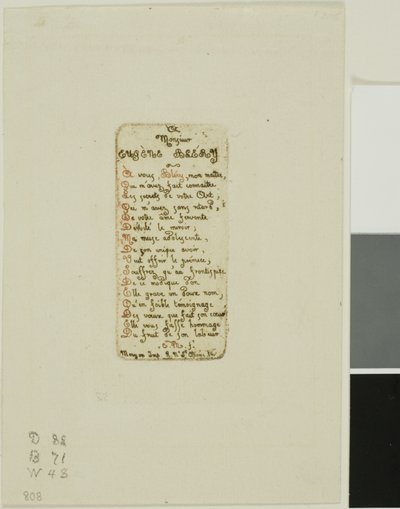 A
Monsieur
EUGÈNE BLÉRY
A vous, Bléry, mon maître,
Qui m'avez fait connaître
Les secrets de votre Art,
Qui m'avez sans retard,
De votre âme fervente
Dévoilé le miroir;
Ma muse adolescente,
De son unique avoir,
Veut offrir le prémice;
Souffrez qu'au frontispice
De ce modique Don
Elle grave un doux nom,
Qu'en faible témoignage
Des vœux que fait son cœur
Elle vous fasse hommage
Du fruit de son labeur
C. M. f.
Imp. R. N.
D 88
B 71
W 48
808